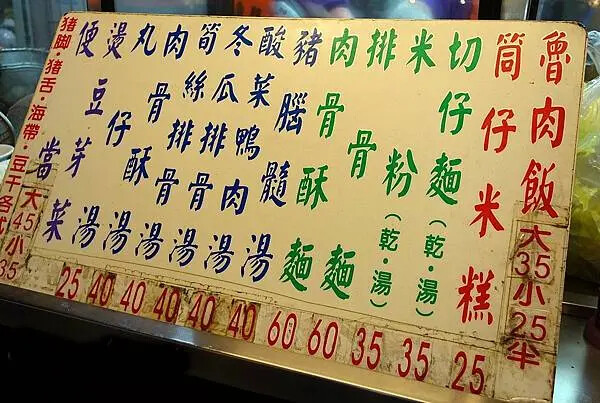 魯肉飯 大35小25半
筒仔米糕 25
切仔麵(乾·湯) 35
米粉(乾·湯) 35
排骨麵 60
肉骨酥麵 60
豬腦髓湯 40
酸菜鴨肉湯 40
冬瓜排骨湯 40
筍絲排骨湯 40
肉骨酥湯 40
丸仔湯 25
燙豆芽菜
便當
猪脚·猪舌·海帶·豆干各
大45小35